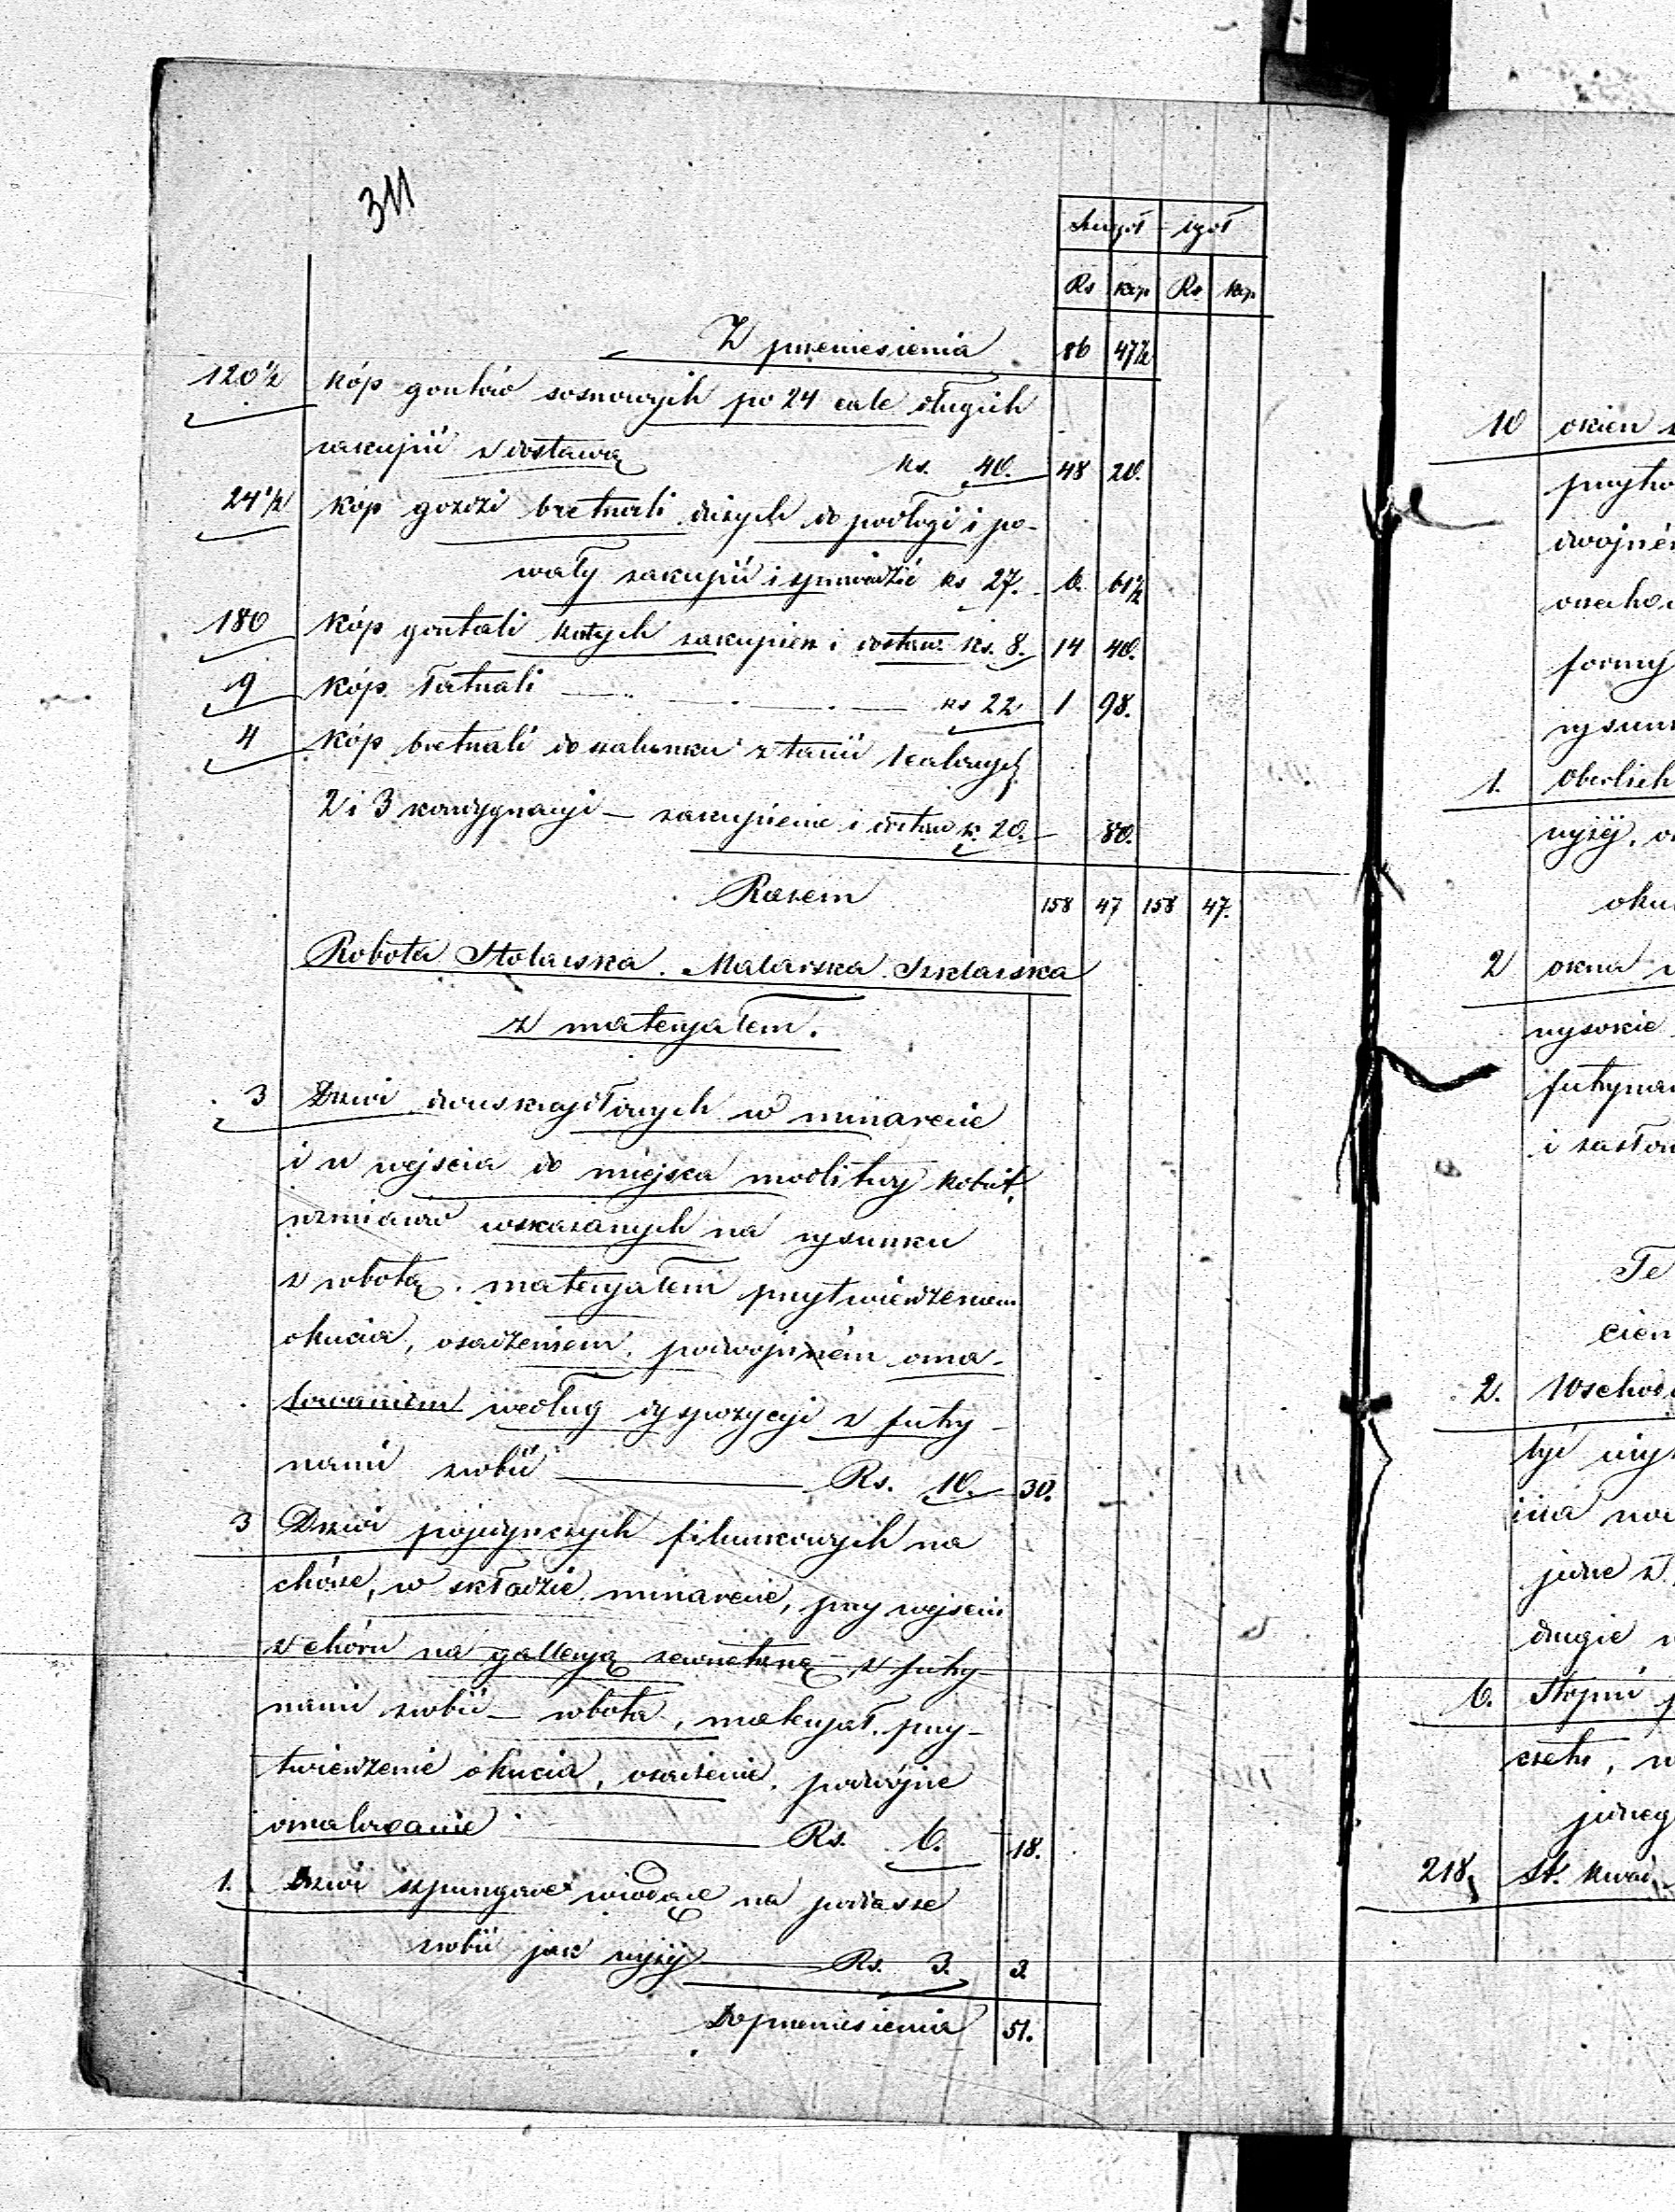 311
Szczegół ogół
Rs kop Rs kop
Z przeniesienia 86 47½
120½ Kóp gontów sosnowych po 24 cale długich
zakupić z dostawą ks. 40. 48 20.
24½ Kóp gozdzi bretnali dużych do podłogi i po-
wały zakupić i sprowadzić ks 27. 6. 61½
180 Kóp gontali zakupien i dostaw. ks. 8. 14 40.
9 Kóp łatnali ks 22 1 98.
4 Kóp bretnali do szalunku z tarcic 1 calowych
2 i 3 kondygnacyi – zakupienie i dostaw k. 20. – 80.
Razem 158 47 158 47.
Robota Stolarska. Malarska. Szklarska
z materyałem.
3 Drzwi dwuskrzydłowych w minarecie
i u wejścia do miejsca modlitwy kobiet,
wymiarów wskazanych na rysunku
z robotą. materyałem przytwierdzeniem
okucia, osadzeniem, podwojném oma-
lowaniem według dyspozycyi z futry-
nami zrobić Rs. 10. 30.
3 Drzwi pojedynczych filunkowych na
chórze, w składzie. minarecie, przy wejściu
z chóru na galleryą zewnętrzną – z futry-
nami zrobić – robota, materyał. przy-
twierdzenie okucia, osadzenie, podwójne
omalowanie Rs. 6. 18.
1. Drzwi szpungowe wiodące na poddasze
zrobić jak wyżej Rs. 3. 3
Do przeniesienia 51.
10 okien
dwojné
formy
rysun
1. Oberlich
wyżéj, o
oku
2 okna
wysokie
futryna
i zasłon
Te
cien
2. Wschod
być
drugie
6. Stopni
czeter,
jedneg
218 St. kwad.